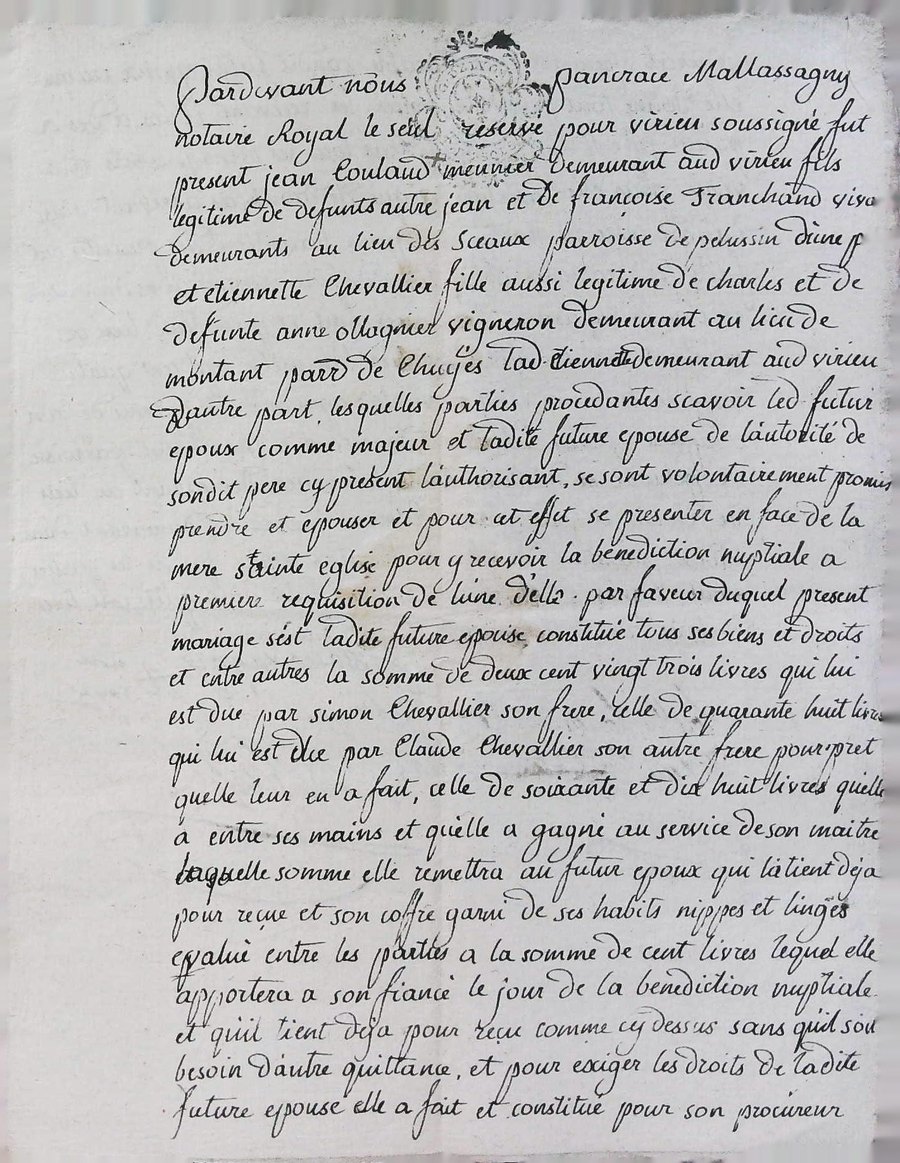 Pardevant nous pancrace Mallassagny
notaire Royal le seul reservé pour virieu soussigné fut
present jean Couland meunier demeurant aud virieu fils
legitime de defunts autre jean et de francoise Tranchand viva
demeurants au lieu des Sceaux parroisse de pelussin d'une p
et etiennette Chevallier fille aussi legitime de charles et de
defunte anne ollagnier vigneron demeurant au lieu de
montant parr de Chuyes lad etiennette demeurant aud virieu
d'autre part, lesquelles parties procedantes scavoir led futur
epoux comme majeur et ladite future epouse de l'autorité de
sondit pere cy present l'authorisant, se sont volontairement promis
prendre et epouser et pour cet effet se presenter en face de la
mere sainte eglise pour y recevoir la benediction nuptiale a
premiere requisition de l'une d'elle. par faveur duquel present
mariage s'est ladite future epouse constitué tous ses biens et droits
et entre autres la somme de deux cent vingt trois livres qui lui
est due par simon Chevallier son frere, celle de quarante huit livres
qui lui est due par Claude Chevallier son autre frere pour pret
quelle leur en a fait, celle de soixante et dix huit livres qu'elle
a entre ses mains et qu'elle a gagné au service de son maitre
laquelle somme elle remettra au futur epoux qui la tient deja
pour reçue et son coffre garni de ses habits nippes et linges
evalué entre les parties a la somme de cent livres lequel elle
apportera a son fiancé le jour de la benediction nuptiale
et qu'il tient deja pour reçu comme cy dessus sans qu'il soit
besoin d'autre quittance, et pour exiger les droits de ladite
future epouse elle a fait et constitué pour son procureur